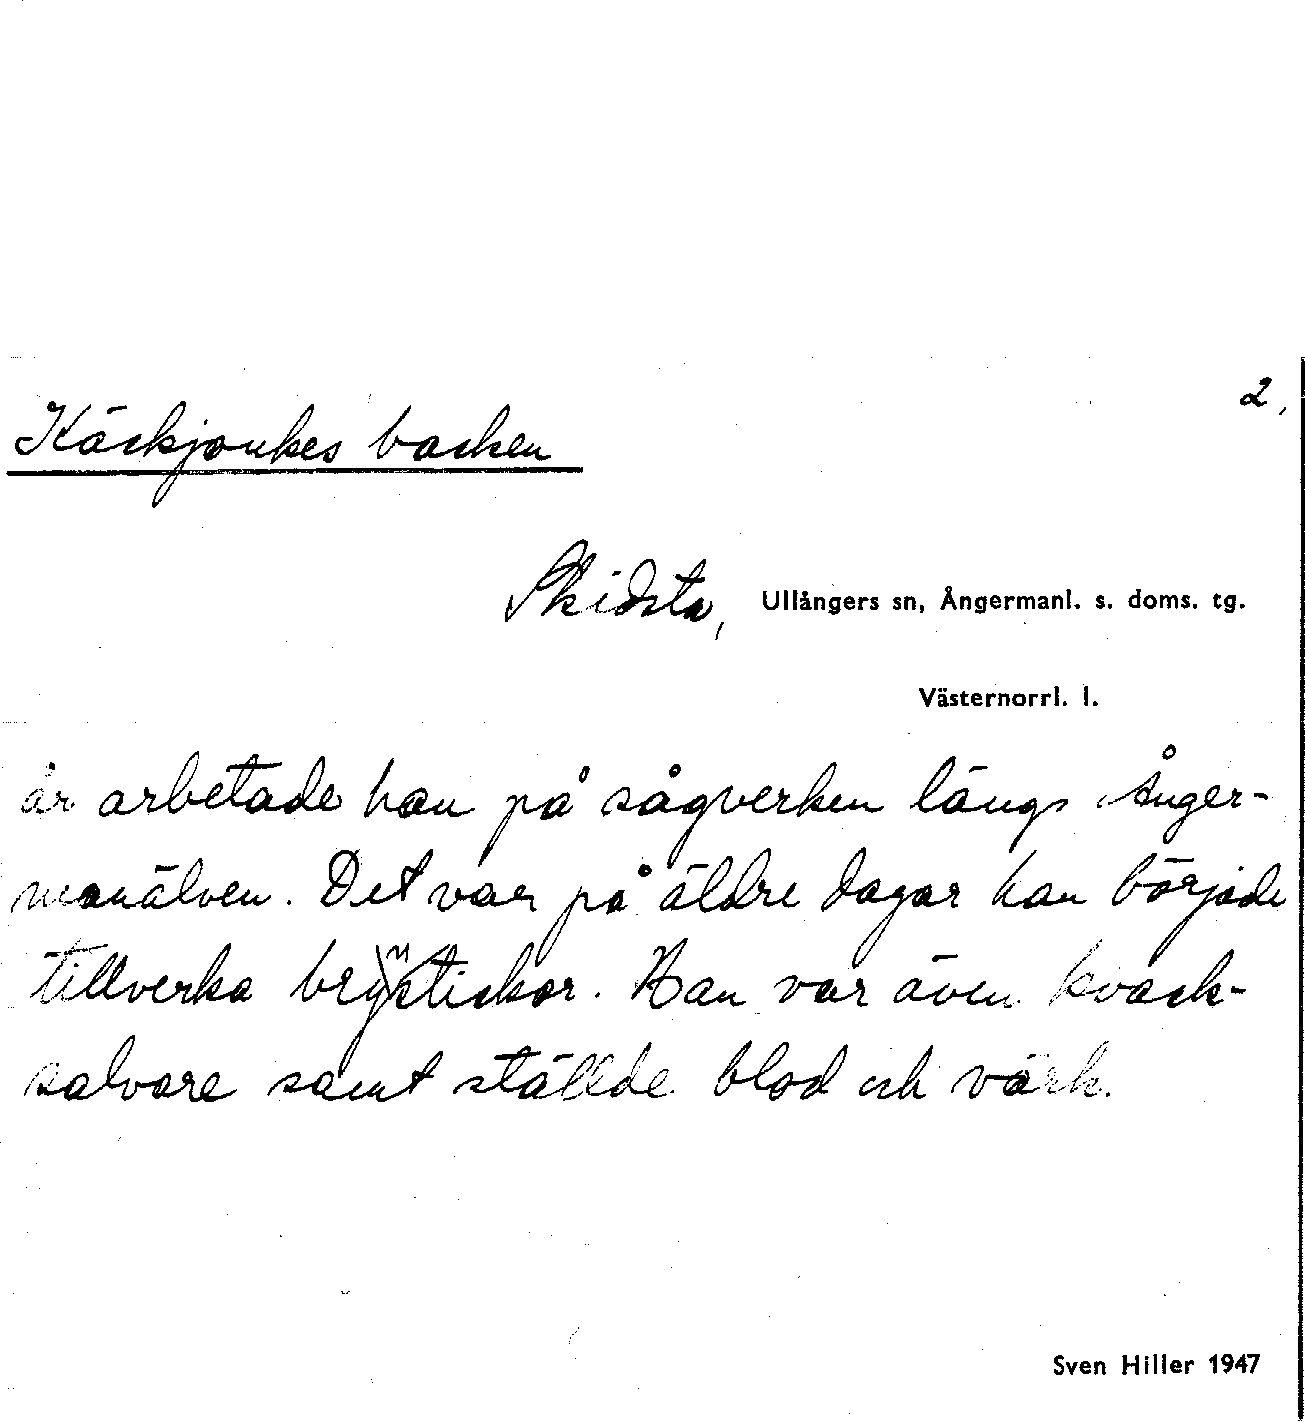 2,
Käckjoukes backen
Skidsta, Ullångers sn, Ångermanl. s. doms. tg.
Västernorrl. l.
år arbetade han på sågverken längs Ånger-
manälven. Det var på äldre dagar han började
tillverka
Han var även kvack-
salvare samt ställde blod och värk.
Sven Hiller 1947